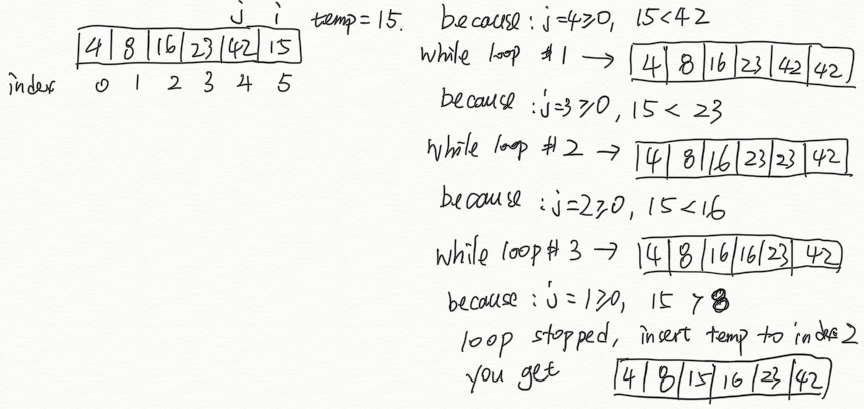 j i temp = 15.
4 8 16 23 42 15
index 0 1 2 3 4 5
because : j=4≥0, 15<42
while loop #1 → 4 8 16 23 42 42
because : j=3≥0, 15 < 23
while loop #2 → 4 8 16 23 23 42
because : j=2≥0, 15<16
while loop #3 → 4 8 16 16 23 42
because : j=1≥0, 15 > 8
loop stopped, insert temp to index 2
you get 4 8 15 16 23 42